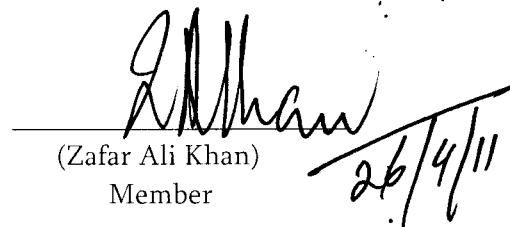 ZAKhan
(Zafar Ali Khan)
Member
26/4/11